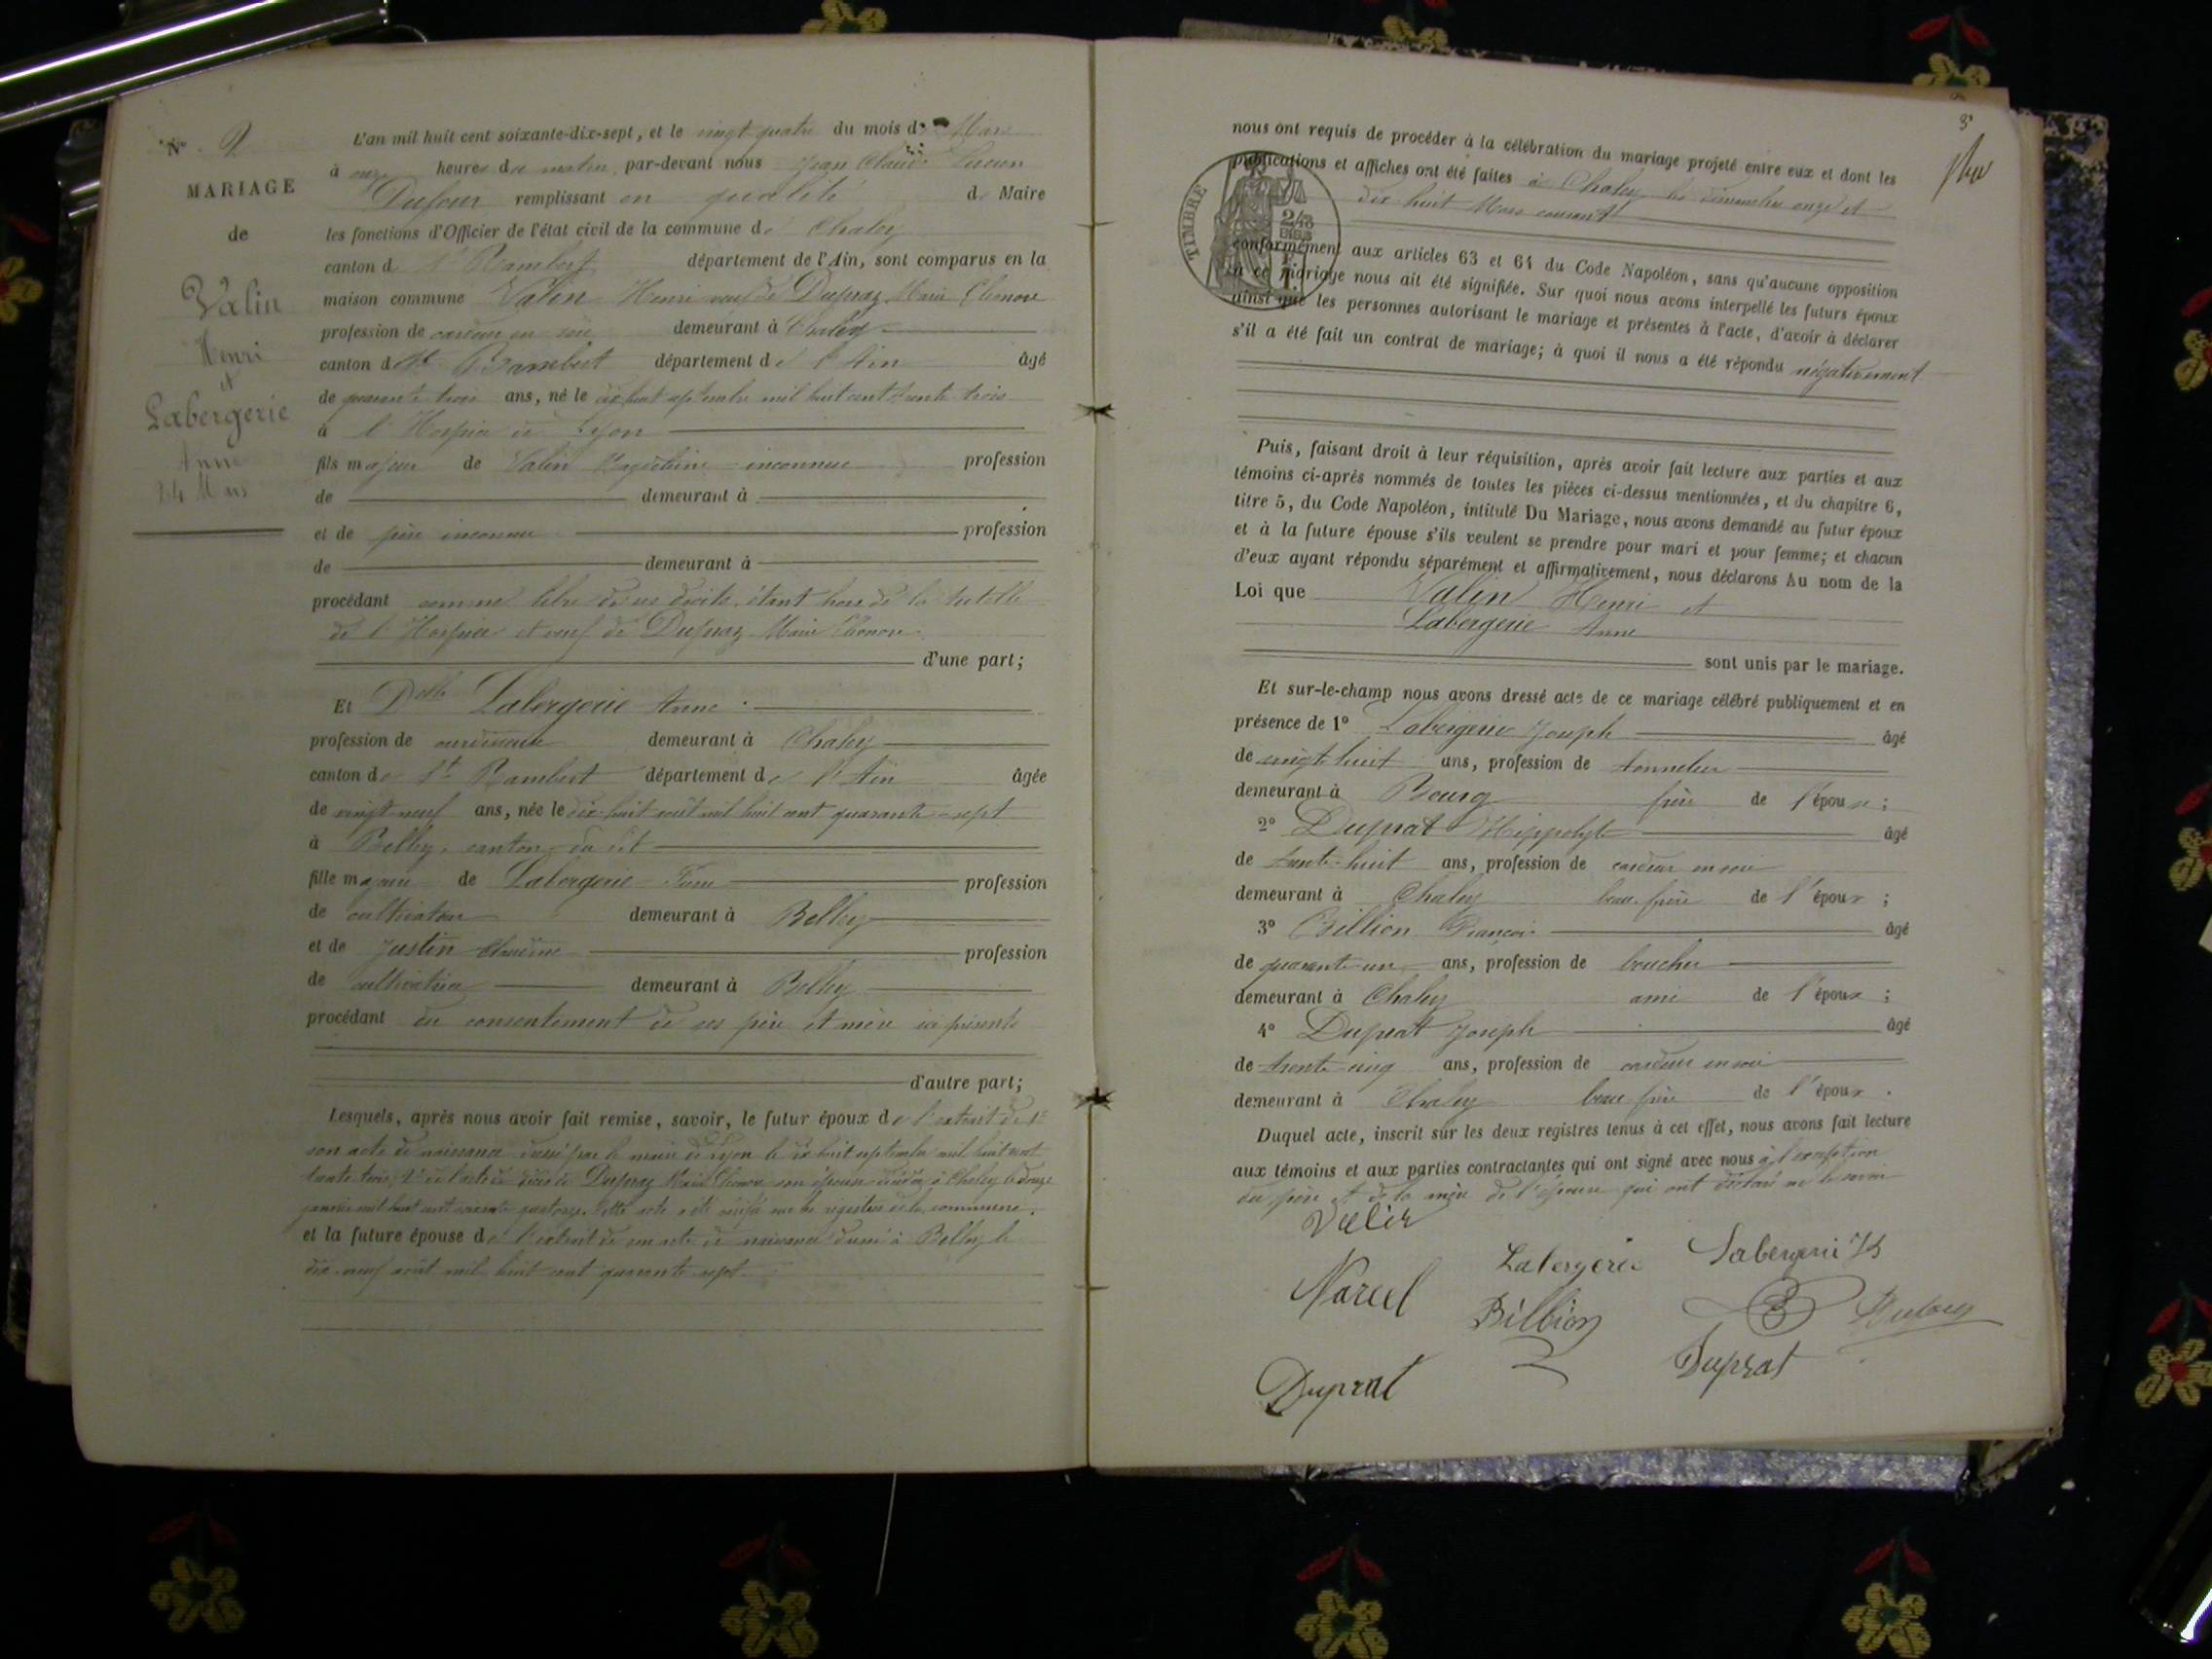 N° 2
MARIAGE
de
Valin
Henri
et
Labergerie
Anne
24 Mars
L'an mil huit cent soixante-dix-sept, et le vingt quatre du mois de Mars
à onze heures du matin, par-devant nous Jean Claude Lucien
Dufour remplissant en qualité de Maire
les fonctions d'Officier de l'état civil de la commune de Chaley
canton de St Rambert département de l'Ain, sont comparus en la
maison commune Valin Henri veuf de Dupraz Marie Eléonore
profession de cardeur en soie demeurant à Chaley
canton de St Rambert département de l'Ain âgé
de quarante trois ans, né le dix huit septembre mil huit cent trente trois
à l'Hospice de Lyon
fils majeur de Valin inconnue profession
de demeurant à
et de père inconnu profession
de demeurant à
procédant comme libre de ses droits, étant hors de la tutelle
de l'Hospice et veuf de Dupraz Marie Eléonore
d'une part;
Et Delle Labergerie Anne
profession de ourdisseuse demeurant à Chaley
canton de St Rambert département de l'Ain âgée
de vingt neuf ans, née le dix-huit août mil huit cent quarante-sept
à Belley, canton du dit
fille majeure de Labergerie profession
de cultivateur demeurant à Belley
et de Justin Claudine profession
de cultivatrice demeurant à Belley
procédant du consentement de ses père et mère ici présents
d'autre part;
Lesquels, après nous avoir fait remise, savoir, le futur époux de l'extrait de 1°
son acte de naissance dressé par le maire de Lyon le dix huit septembre mil huit cent
trente trois, 2° de l'acte de décès de Dupraz Marie Eléonore son épouse décédée à Chaley le douze
janvier mil huit cent soixante quatorze. Cette acte a été vérifié sur les registres de la commune.
et la future épouse de l'extrait de son acte de naissance dressé à Belley le
dix-neuf août mil huit cent quarante-sept.
3
nous ont requis de procéder à la célébration du mariage projeté entre eux et dont les
publications et affiches ont été faites à Chaley les dimanches onze et
dix huit Mars courant
TIMBRE
conformément aux articles 63 et 64 du Code Napoléon, sans qu'aucune opposition
à ce mariage nous ait été signifiée. Sur quoi nous avons interpellé les futurs époux
ainsi que les personnes autorisant le mariage et présentes à l'acte, d'avoir à déclarer
s'il a été fait un contrat de mariage; à quoi il nous a été répondu négativement
Puis, faisant droit à leur réquisition, après avoir fait lecture aux parties et aux
témoins ci-après nommés de toutes les pièces ci-dessus mentionnées, et du chapitre 6,
titre 5, du Code Napoléon, intitulé Du Mariage, nous avons demandé au futur époux
et à la future épouse s'ils veulent se prendre pour mari et pour femme; et chacun
d'eux ayant répondu séparément et affirmativement, nous déclarons Au nom de la
Loi que Valin Henri et
Labergerie Anne
sont unis par le mariage.
Et sur-le-champ nous avons dressé acte de ce mariage célébré publiquement et en
présence de 1° Labergerie Joseph âgé
de vingt huit ans, profession de tonnelier
demeurant à Bourg frère de l'épouse;
2° Duprat Hippolyte âgé
de trente-huit ans, profession de cardeur en soie
demeurant à Chaley beau-frère de l'époux;
3° Billion François âgé
de quarante-un ans, profession de boucher
demeurant à Chaley ami de l'époux;
4° Duprat Joseph âgé
de trente-cinq ans, profession de cardeur en soie
demeurant à Chaley beau-frère de l'époux.
Duquel acte, inscrit sur les deux registres tenus à cet effet, nous avons fait lecture
aux témoins et aux parties contractantes qui ont signé avec nous à l'exception
du père et de la mère de l'épouse qui ont déclaré ne le savoir
Valin
Labergerie
Labergerie Jh
Marcel
Billion
Dufour
Duprat
Duprat